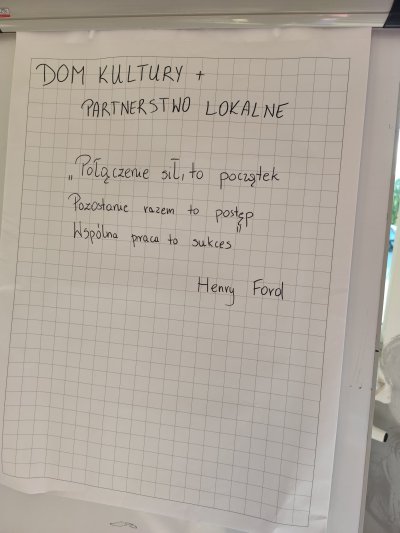 DOM KULTURY +
PARTNERSTWO LOKALNE
„Połączenie sił, to początek
Pozostanie razem to postęp
Wspólna praca to sukces”
Henry Ford